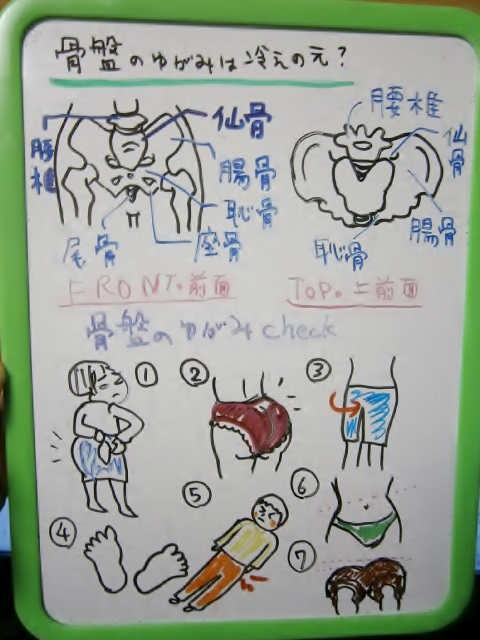 骨盤のゆがみは冷えの元?
腰椎
仙骨
腸骨
恥骨
座骨
尾骨
腰椎
仙骨
腸骨
恥骨
FRONT。前面
TOP。上前面
骨盤のゆがみcheck
①
②
③
④
⑤
⑥
⑦